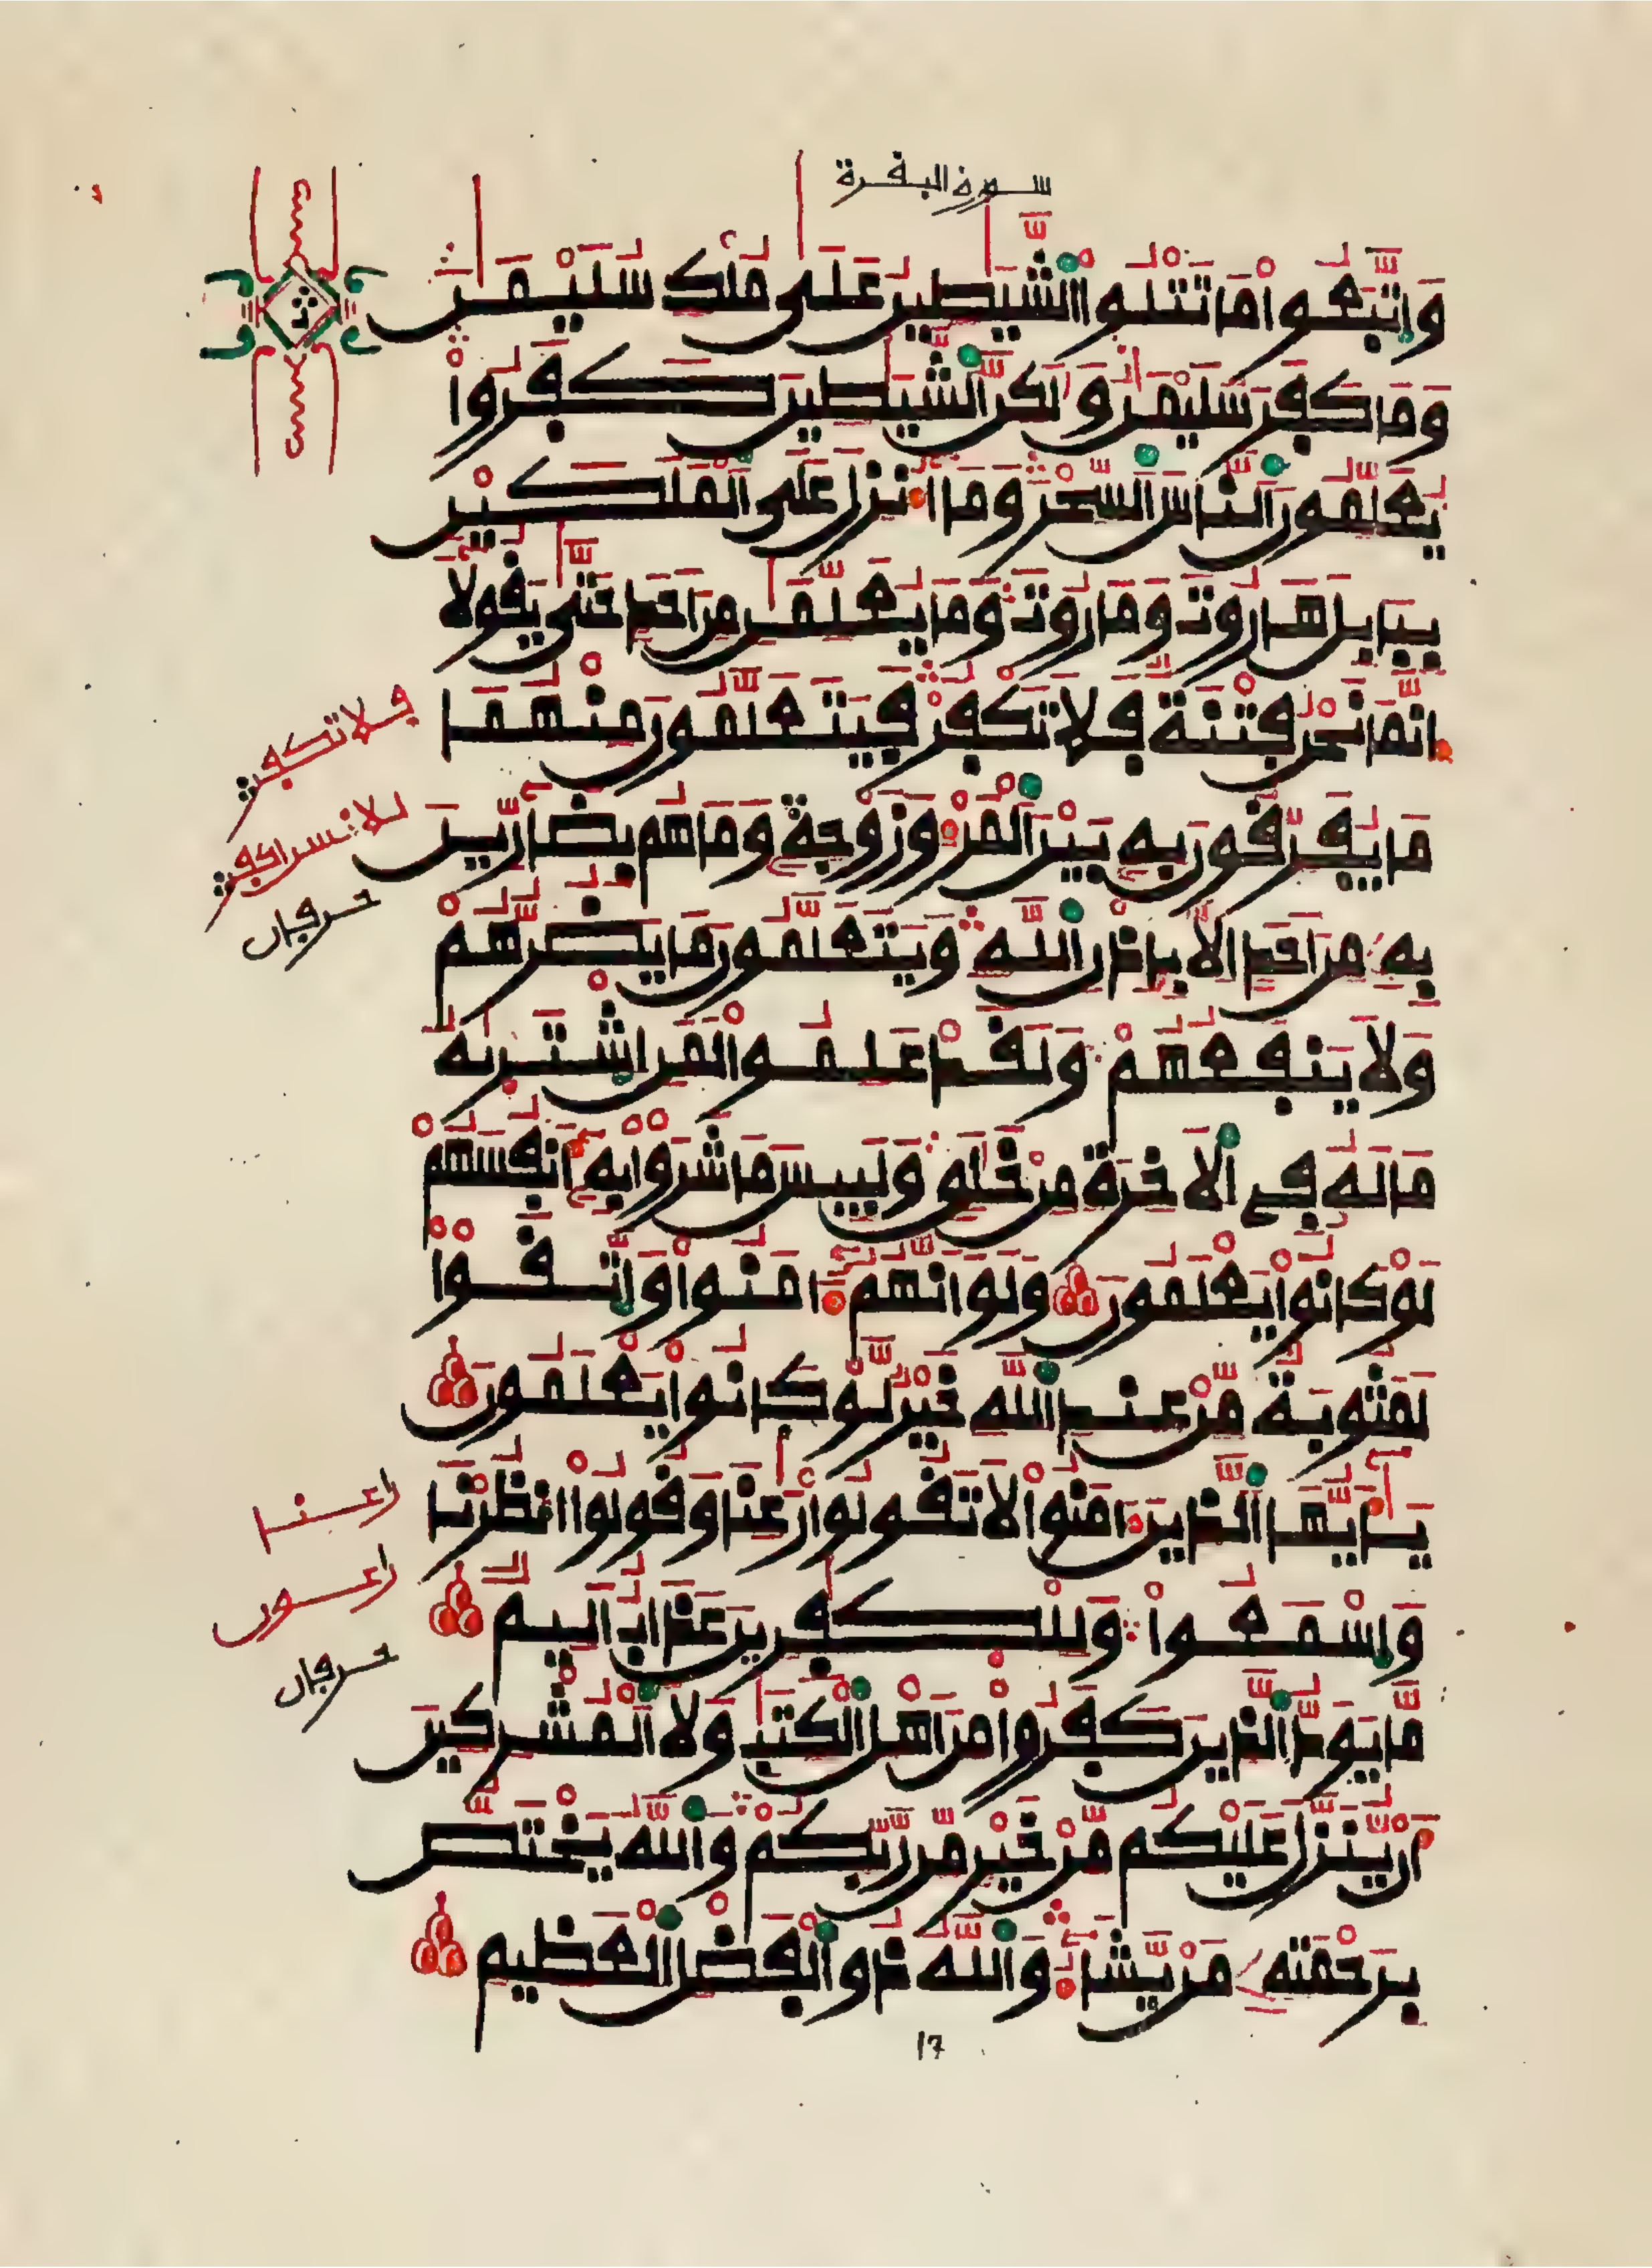 سورة البقرة
وَاتَّبَعُوا مَا تَتْلُوا الشَّيَٰطِينُ عَلَىٰ مُلْكِ سُلَيْمَٰنَ
وَمَا كَفَرَ سُلَيْمَٰنُ وَلَٰكِنَّ الشَّيَٰطِينَ كَفَرُوا
يُعَلِّمُونَ النَّاسَ السِّحْرَ وَمَا أُنزِلَ عَلَى الْمَلَكَيْنِ
بِبَابِلَ هَارُوتَ وَمَارُوتَ وَمَا يُعَلِّمَٰنِ مِنْ أَحَدٍ حَتَّىٰ يَقُولَا
إِنَّمَا نَحْنُ فِتْنَةٌ فَلَا تَكْفُرْ فَيَتَعَلَّمُونَ مِنْهُمَا
مَا يُفَرِّقُونَ بِهِ بَيْنَ الْمَرْءِ وَزَوْجِهِ وَمَا هُم بِضَارِّينَ
بِهِ مِنْ أَحَدٍ إِلَّا بِإِذْنِ اللَّهِ وَيَتَعَلَّمُونَ مَا يَضُرُّهُمْ
وَلَا يَنفَعُهُمْ وَلَقَدْ عَلِمُوا لَمَنِ اشْتَرَىٰهُ
مَا لَهُ فِي الْأَخِرَةِ مِنْ خَلَٰقٍ وَلَبِيسَ مَا شَرَوْا بِهِ أَنفُسَهُمْ
لَوْ كَانُوا يَعْلَمُونَ وَلَوْ أَنَّهُمْ ءَامَنُوا وَاتَّقَوْا
لَمَثُوبَةٌ مِّنْ عِندِ اللَّهِ خَيْرٌ لَّوْ كَانُوا يَعْلَمُونَ
يَٰأَيُّهَا الَّذِينَ ءَامَنُوا لَا تَقُولُوا رَٰعِنَا وَقُولُوا انظُرْنَا
وَاسْمَعُوا وَلِلْكَٰفِرِينَ عَذَابٌ أَلِيمٌ
مَّا يَوَدُّ الَّذِينَ كَفَرُوا مِنْ أَهْلِ الْكِتَٰبِ وَلَا الْمُشْرِكِينَ
أَن يُنَزَّلَ عَلَيْكُم مِّنْ خَيْرٍ مِّن رَّبِّكُمْ وَاللَّهُ يَخْتَصُّ
بِرَحْمَتِهِ مَن يَشَاءُ وَاللَّهُ ذُو الْفَضْلِ الْعَظِيمِ
فلا تكفر
للانسان اكفر
حرفان
راعنا
راعون
حرفان
17